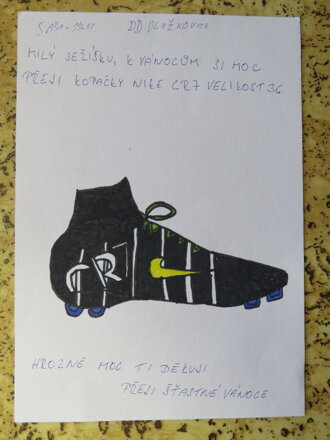 SAŠA-14LET DD PLAŽKOVICE
MILÝ JEŽÍŠKU, K VÁNOCŮM SI MOC
PŘEJI KOPAČKY NIKE CR7 VELIKOST 36
CR7
HROZNĚ MOC TI DĚKUJI
PŘEJI ŠŤASTNÉ VÁNOCE